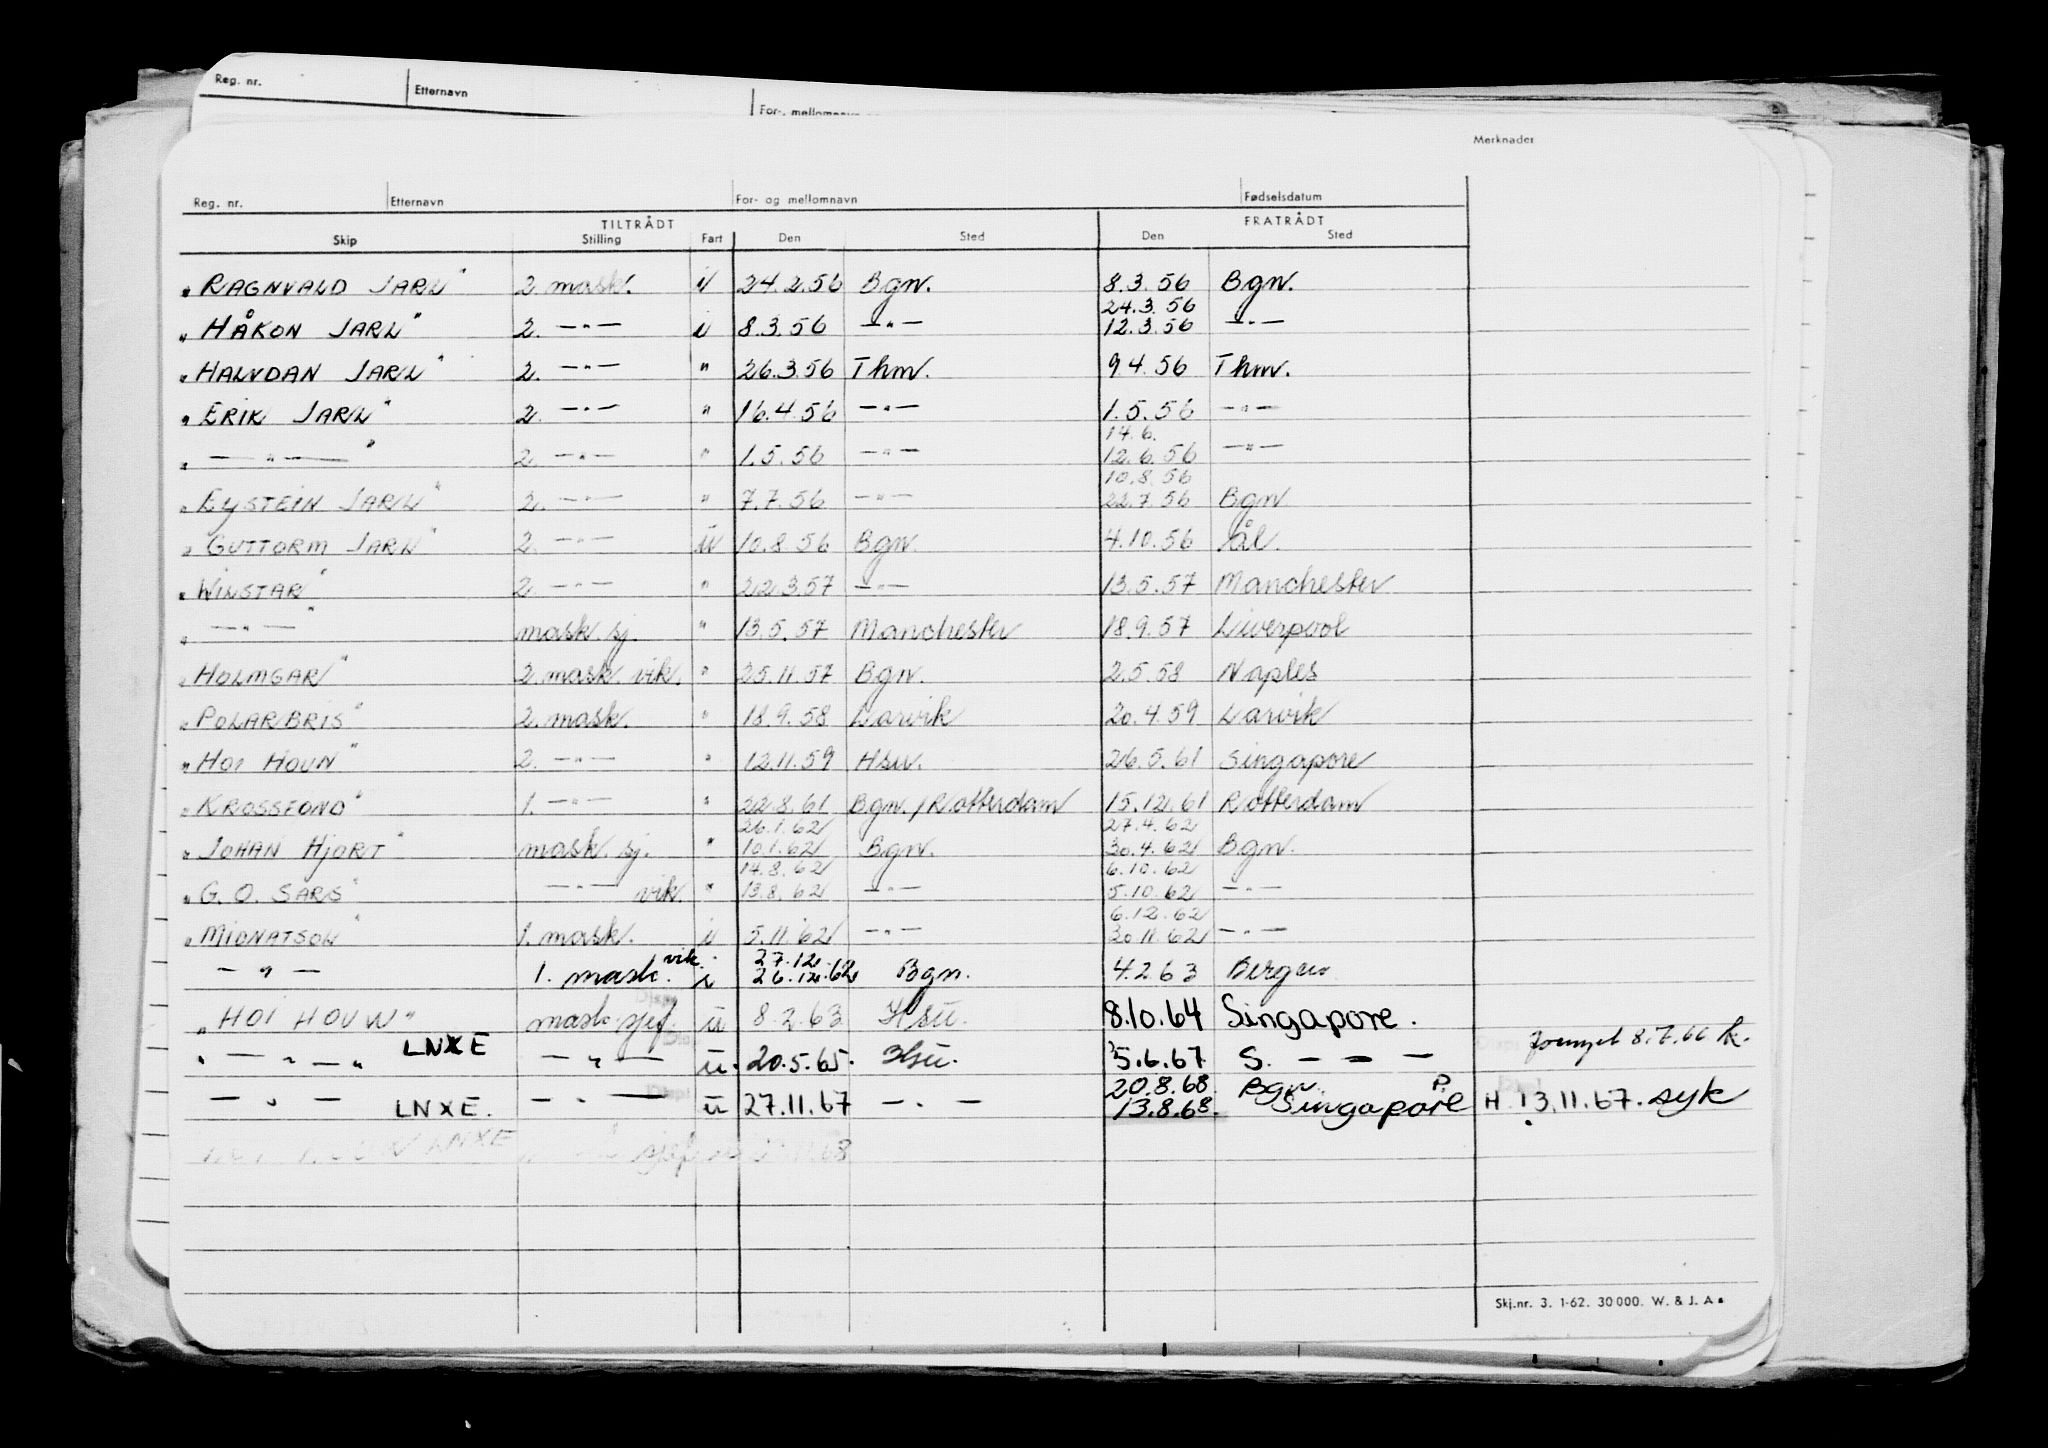 Reg. nr. Etternavn For-, mellomnavn
Merknader
Reg. nr. Etternavn For- og mellomnavn Fødselsdatum
TILTRÅDT FRATRÅDT
Skip Stilling Fart Den Sted Den Sted
"RAGNVALD JARL" 2. mask. i 24.2.56 Bgn. 8.3.56 Bgn.
24.3.56
"HÅKON JARL" 2. —"— i 8.3.56 —"— 12.3.56 —"—
"HALVDAN JARL" 2. —"— " 26.3.56 Thm. 9.4.56 Thm.
"ERIK JARL" 2. —"— " 16.4.56 —"— 1.5.56 —"—
14.6.
"—"—" 2. —"— " 1.5.56 —"— 12.6.56 —"—
10.8.56
"EYSTEIN JARL" 2. —"— " 7.7.56 —"— 22.7.56 Bgn
"GUTTORM JARL" 2. —"— u 10.8.56 Bgn. 4.10.56 Ål.
"WILSTAR" 2 —"— " 22.3.57 —"— 13.5.57 Manchester
"—"—" mask. sj. " 13.5.57 Manchester 18.9.57 Liverpool
"HOLMGAR" 2. mask. vik. " 25.11.57 Bgn. 2.5.58 Naples
"POLARBRIS" 2. mask. " 18.9.58 Larvik 20.4.59 Larvik
"HOI HOUN" 2. —"— " 12.11.59 Hsu. 26.5.61 Singapore
"KROSSFOND" 1. —"— " 22.8.61 Bgn./Rotterdam 15.12.61 Rotterdam
26.1.62 27.4.62
"JOHAN HJORT" mask. sj. " 10.1.62 Bgn. 30.4.62 Bgn.
14.8.62 6.10.62
"G. O. SARS" —"— vik. " 13.8.62 —"— 5.10.62 —"—
6.12.62
"MIDNATSOL" 1. mask. i 5.11.62 —"— 30.11.62 —"—
vik. 27.12.
—"— 1. mask. i 26.12.62 Bgn. 4.2.63 Bergen
"HOI HOUW" mask. sjef. u 8.2.63 Hsu. 8.10.64 Singapore.
"—"—" LNXE —"— u. 20.5.65. Hsu. 5.6.67 S. — — — fornyet 8.7.66 k.
20.8.68. Bgn
—"— LNXE. —"— u 27.11.67 —.— 13.8.68. Singapore H. 13.11.67. syk
LNXE sjef 68
Skj.nr. 3. 1-62. 30000. W. & J. A s